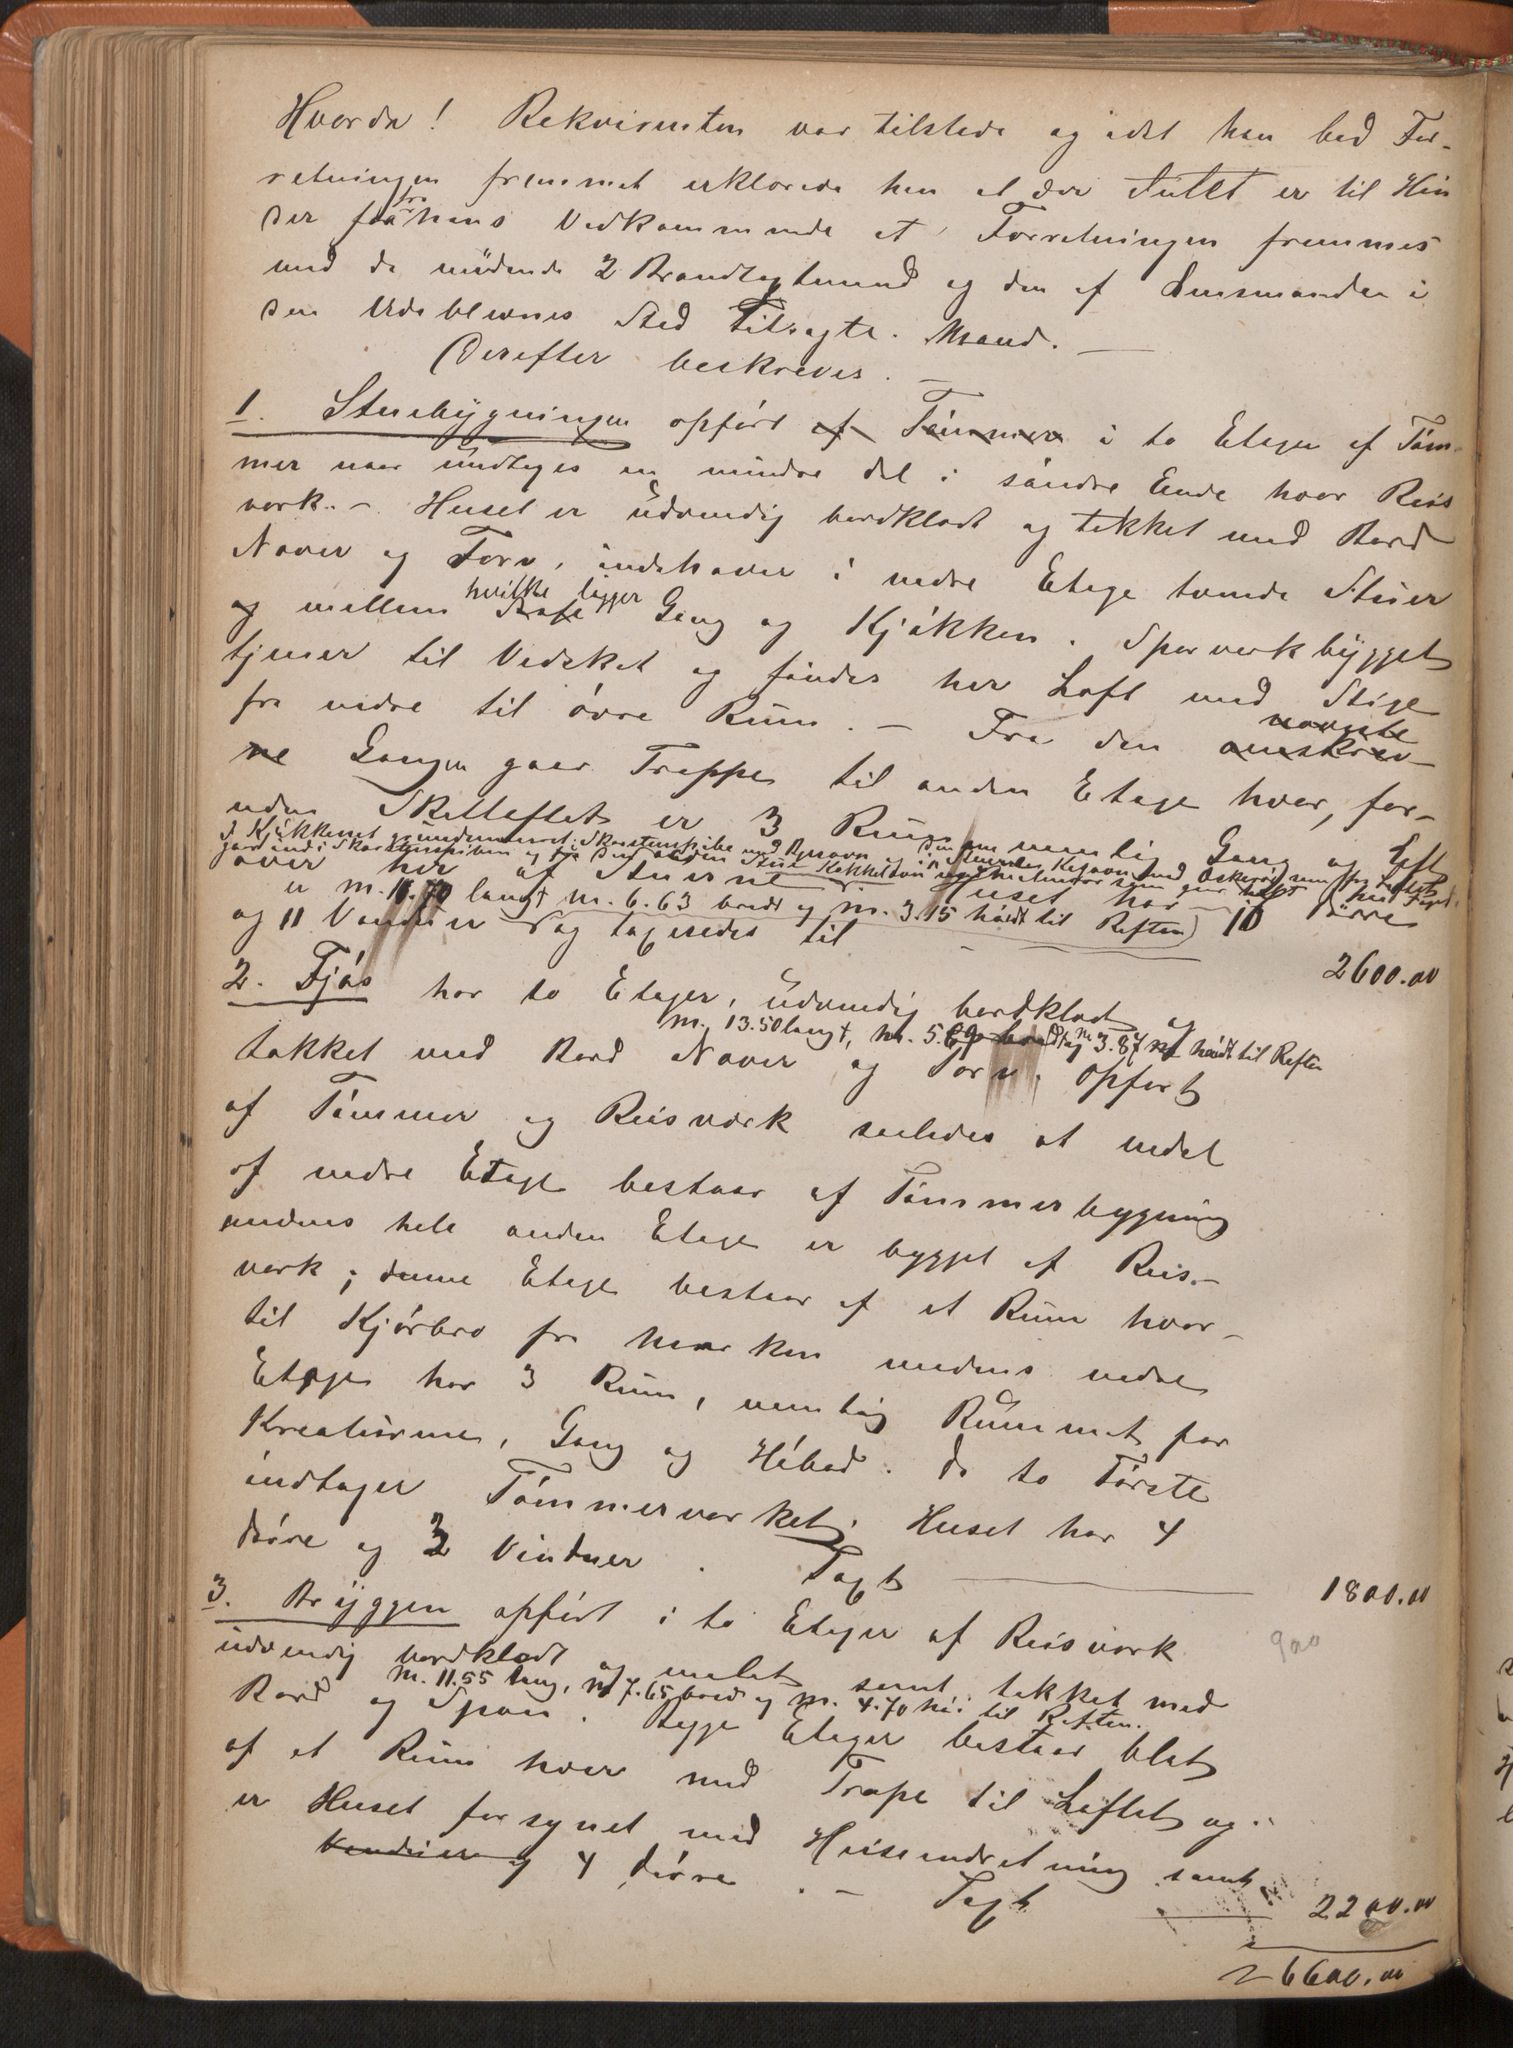 Hvorda! Rekvirenten var tilstede og idet han bad For-
retningen fremmet erklærede han at der Intet er til Hin
der fra hans Vedkommende at Forretningen fremmes
med de mødende 2 Brandtagtmænd og den af Lensmanden i
den Udeblevnes Sted tilsagte Mand. —
Derefter beskreves. —
1. Stuebygningen opført af Tømmer i to Etager af Tøm-
mer naar undtages en mindre del i søndre Ende hvor Reis
værk. — Huset er udvendig bordklædt og tækket med Bord
Næver og Torv, indehaver i nedre Etage tvende Stuer
og mellem hvilke ligger Gang og Kjøkken. Sporværkbygget
tjener til Vedskot og findes her Loft med Stige
fra nedre til øvre Rum. — Fra den nævnte omskrev-
ne Gangen gaar Trappe til anden Etage hvor, for-
uden Skilleloftet er 3 Rum nemlig Gang og Loft
I Kjøkkenet grundmuret Skorstenspibe med Bagerovn
over hver af Stuerne Huset har 10 Døre
er m. 11.70 langt m. 6.63 bredt og m. 3.15 høidt til Raften)
og 11 Vinduer og taxeredes til — 2600.00
2. Fjøs har to Etager, udvendig bordklædt og
m. 13.50 langt, m. 5.69 bredt og m 3.87 høidt til Raften
tækket med Bord Næver og Torv. Opført
af Tømmer og Reisværk saaledes at endel
af nedre Etage bestaar af Tømmerbygning
medens hele anden Etage er bygget af Reis-
værk; denne Etage bestaar af et Rum hvor-
til Kjørbro fra marken medens nedre
Etage har 3 Rum, nemlig Rummet for
Kreaturene, Gang og Høbod. De to Første
indtager Tømmerværket. Huset har 4
Døre og 3 Vinduer. Taxt — 1800.00
3. Bryggen opført i to Etager af Reisværk
900
udvendig bordklædt og malet samt tækket med
m. 11.55 lang, m 7.65 bred og m. 4.70 høi til Raften.
Bord og Spon. Begge Etager bestaar blot
af et Rum hver med Trape til Loftet og
er Huset forsynet med Heiseindretning samt
Vinduer og 4 Døre. — Taxt — 2200.00
6600.00